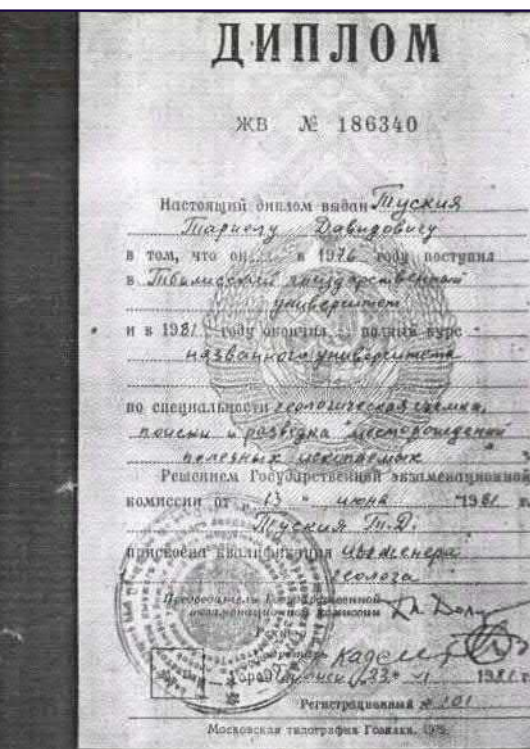 ДИПЛОМ
ЖВ № 186340
Настоящий диплом выдан Туския
Тариелу Давидовичу
в том, что он в 1976 году поступил
в Тбилисский государственный
университет
и в 1981 году окончил полный курс
названного университета
по специальности геологическая съемка,
поиски и разведка месторождений
полезных ископаемых
Решением Государственной экзаменационной
комиссии от " 13 " июня 1981 г.
Туския Т.Д.
присвоена квалификация инженера
геолога
Председатель Государственной
экзаменационной комиссии
Ректор
Секретарь
Город 1981 г.
Регистрационный № 101
Московская типография Гознака. 1975.